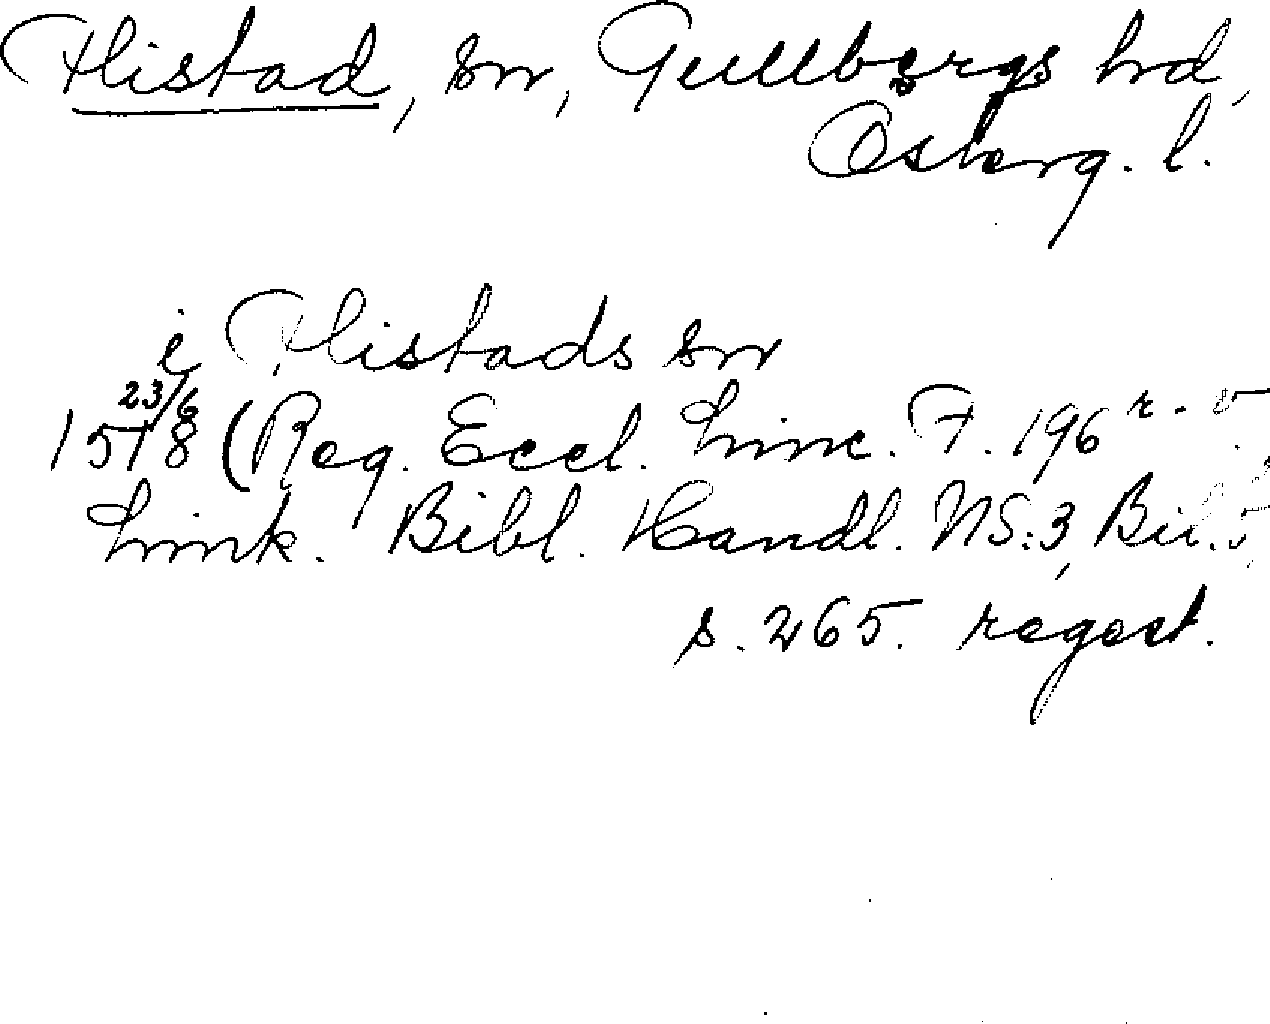 Flistad, sn, Gullbergs hd,
Österg. l.
i Flistads sn
1518 23/6 (Reg. Eccl. Linc. F. 196 r. - v.
Link. Bibl. Handl. NS:3, Bil.
s. 265. regest.